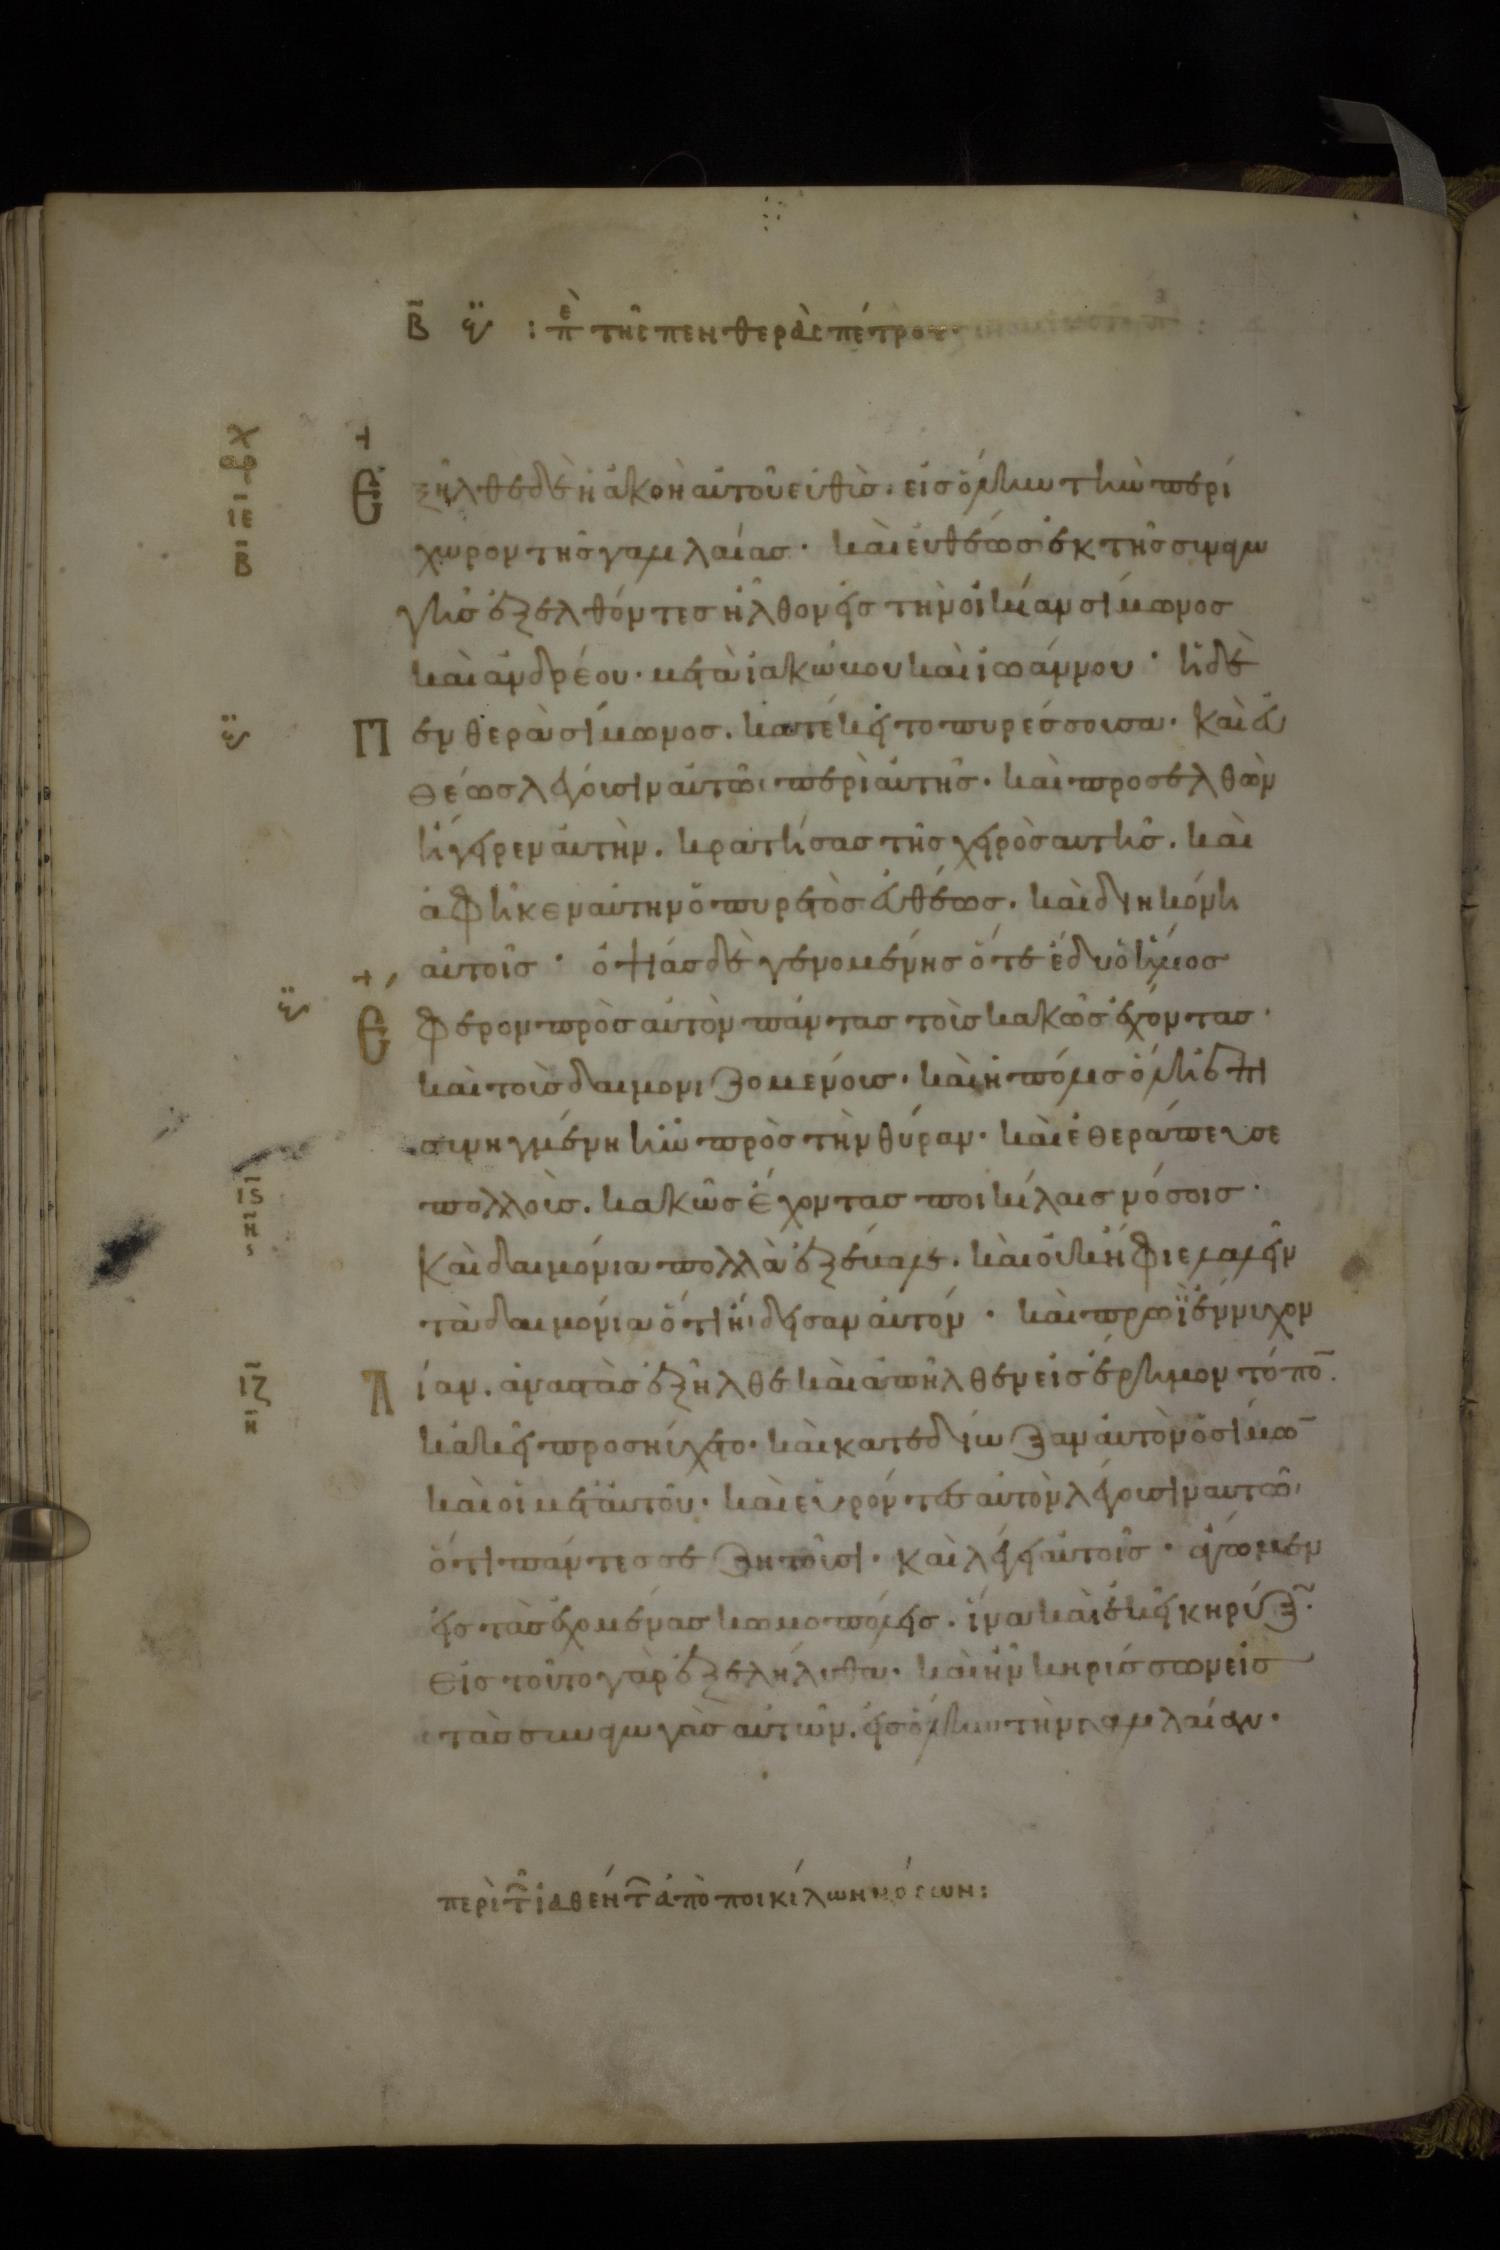 Β : πὲ τῆς πενθερᾶς πέτρου
Ε ξῆλθε δὲ ἡ ἀκοὴ αὐτοῦ εὐθὺς. εἰς ὅλην τὴν περί
ΙΕ χωρον τῆς γαλιλαίας· καὶ εὐθέως ἐκ τῆς συναγω
Β γῆς ἐξελθόντες ἦλθον εἰς τὴν οἰκίαν σίμωνος
καὶ ἀνδρέου· μετὰ ἰακώβου καὶ ἰωάννου· ἡ δὲ
Π ενθερὰ σίμωνος. κατέκειτο πυρέσσουσα· καὶ εὐ
θέως λέγουσιν αὐτῶ περὶ αὐτῆς· καὶ προσελθὼν
ἤγειρεν αὐτὴν. κρατήσας τῆς χειρὸς αὐτῆς. καὶ
ἀφῆκεν αὐτὴν ὁ πυρετὸς εὐθέως. καὶ διηκόνει
αὐτοῖς· ὀψίας δὲ γενομένης ὅτε ἔδυ ὁ ἥλιος
Ε φερον πρὸς αὐτὸν πάντας τοὺς κακῶς ἔχοντας·
καὶ τοὺς δαιμονιζομένους· καὶ ἡ πόλις ὅλη ἐπι
συνηγμένη ἦν πρὸς τὴν θύραν· καὶ ἐθεράπευσε
ΙϚ πολλοὺς. κακῶς ἔχοντας ποικίλαις νόσοις·
Η καὶ δαιμόνια πολλὰ ἐξέβαλε. καὶ οὐκ ἤφιε λαλεῖν
τὰ δαιμόνια ὅτι ἤδεισαν αὐτόν· καὶ πρωῒ ἔννυχον
ΙΖ Λ ίαν. ἀναστὰς ἐξῆλθε καὶ ἀπῆλθεν εἰς ἔρημον τόπο̄.
Η κἀκεῖ προσηύχετο· καὶ κατεδίωξαν αὐτὸν ὁ σίμω̄
καὶ οἱ μετ' αὐτοῦ· καὶ εὑρόντες αὐτὸν λέγουσιν αὐτῶ
ὅτι πάντες σε ζητοῦσι· καὶ λέγει αὐτοῖς· ἄγωμεν
εἰς τὰς ἐχομένας κωμοπόλεις. ἵνα καὶ ἐκεῖ κηρύξ̄·
εἰς τοῦτο γὰρ ἐξελήλυθα· καὶ ἦν κηρύσσων εἰς
τὰς συναγωγὰς αὐτῶν. εἰς ὅλην τὴν γαλιλαίαν·
περὶ τ̑ ἰαθέντ̑ ἀπὸ ποικίλων νόσων: